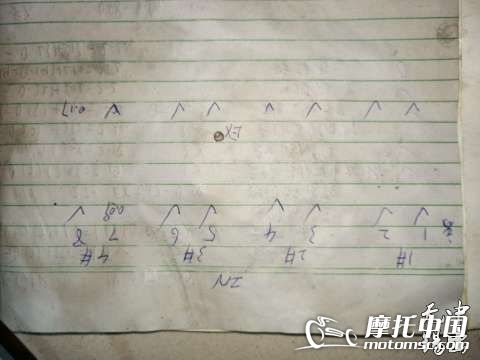 IN
1# 2# 3# 4#
1 2 3 4 5 6 7 8
✓ ✓ ✓ ✓ ✓ ✓ 0.08 ✓
EX
✓ ✓ ✓ ✓ ✓ ✓ ✓ 0.17
摩托中国